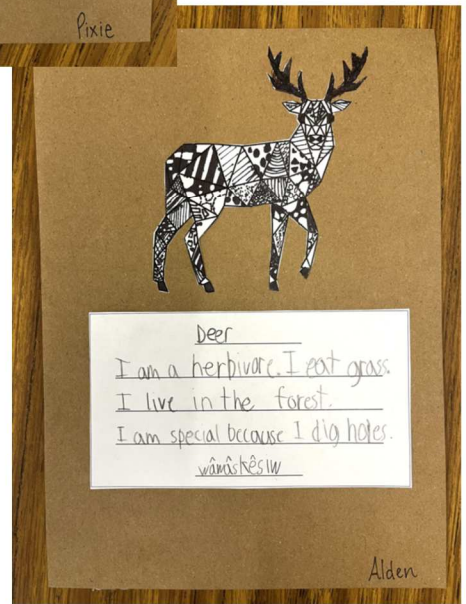 Pixie
Deer
I am a herbivore. I eat grass.
I live in the forest.
I am special because I dig holes.
wâmâskêsiw
Alden